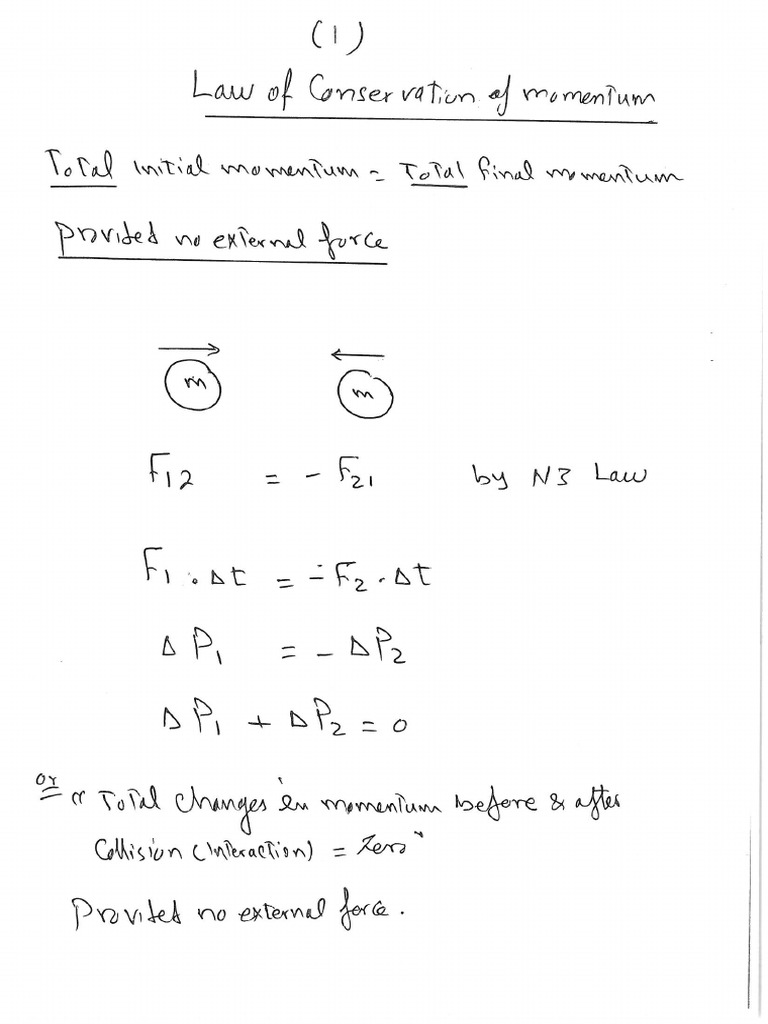 (1)
Law of Conservation of momentum
Total initial momentum = Total final momentum
provided no external force
m m
F12 = - F21 by N3 Law
F1 . Δt = - F2 . Δt
Δ P1 = - Δ P2
Δ P1 + Δ P2 = 0
or " Total changes in momentum before & after
Collision (interaction) = Zero "
Provided no external force.